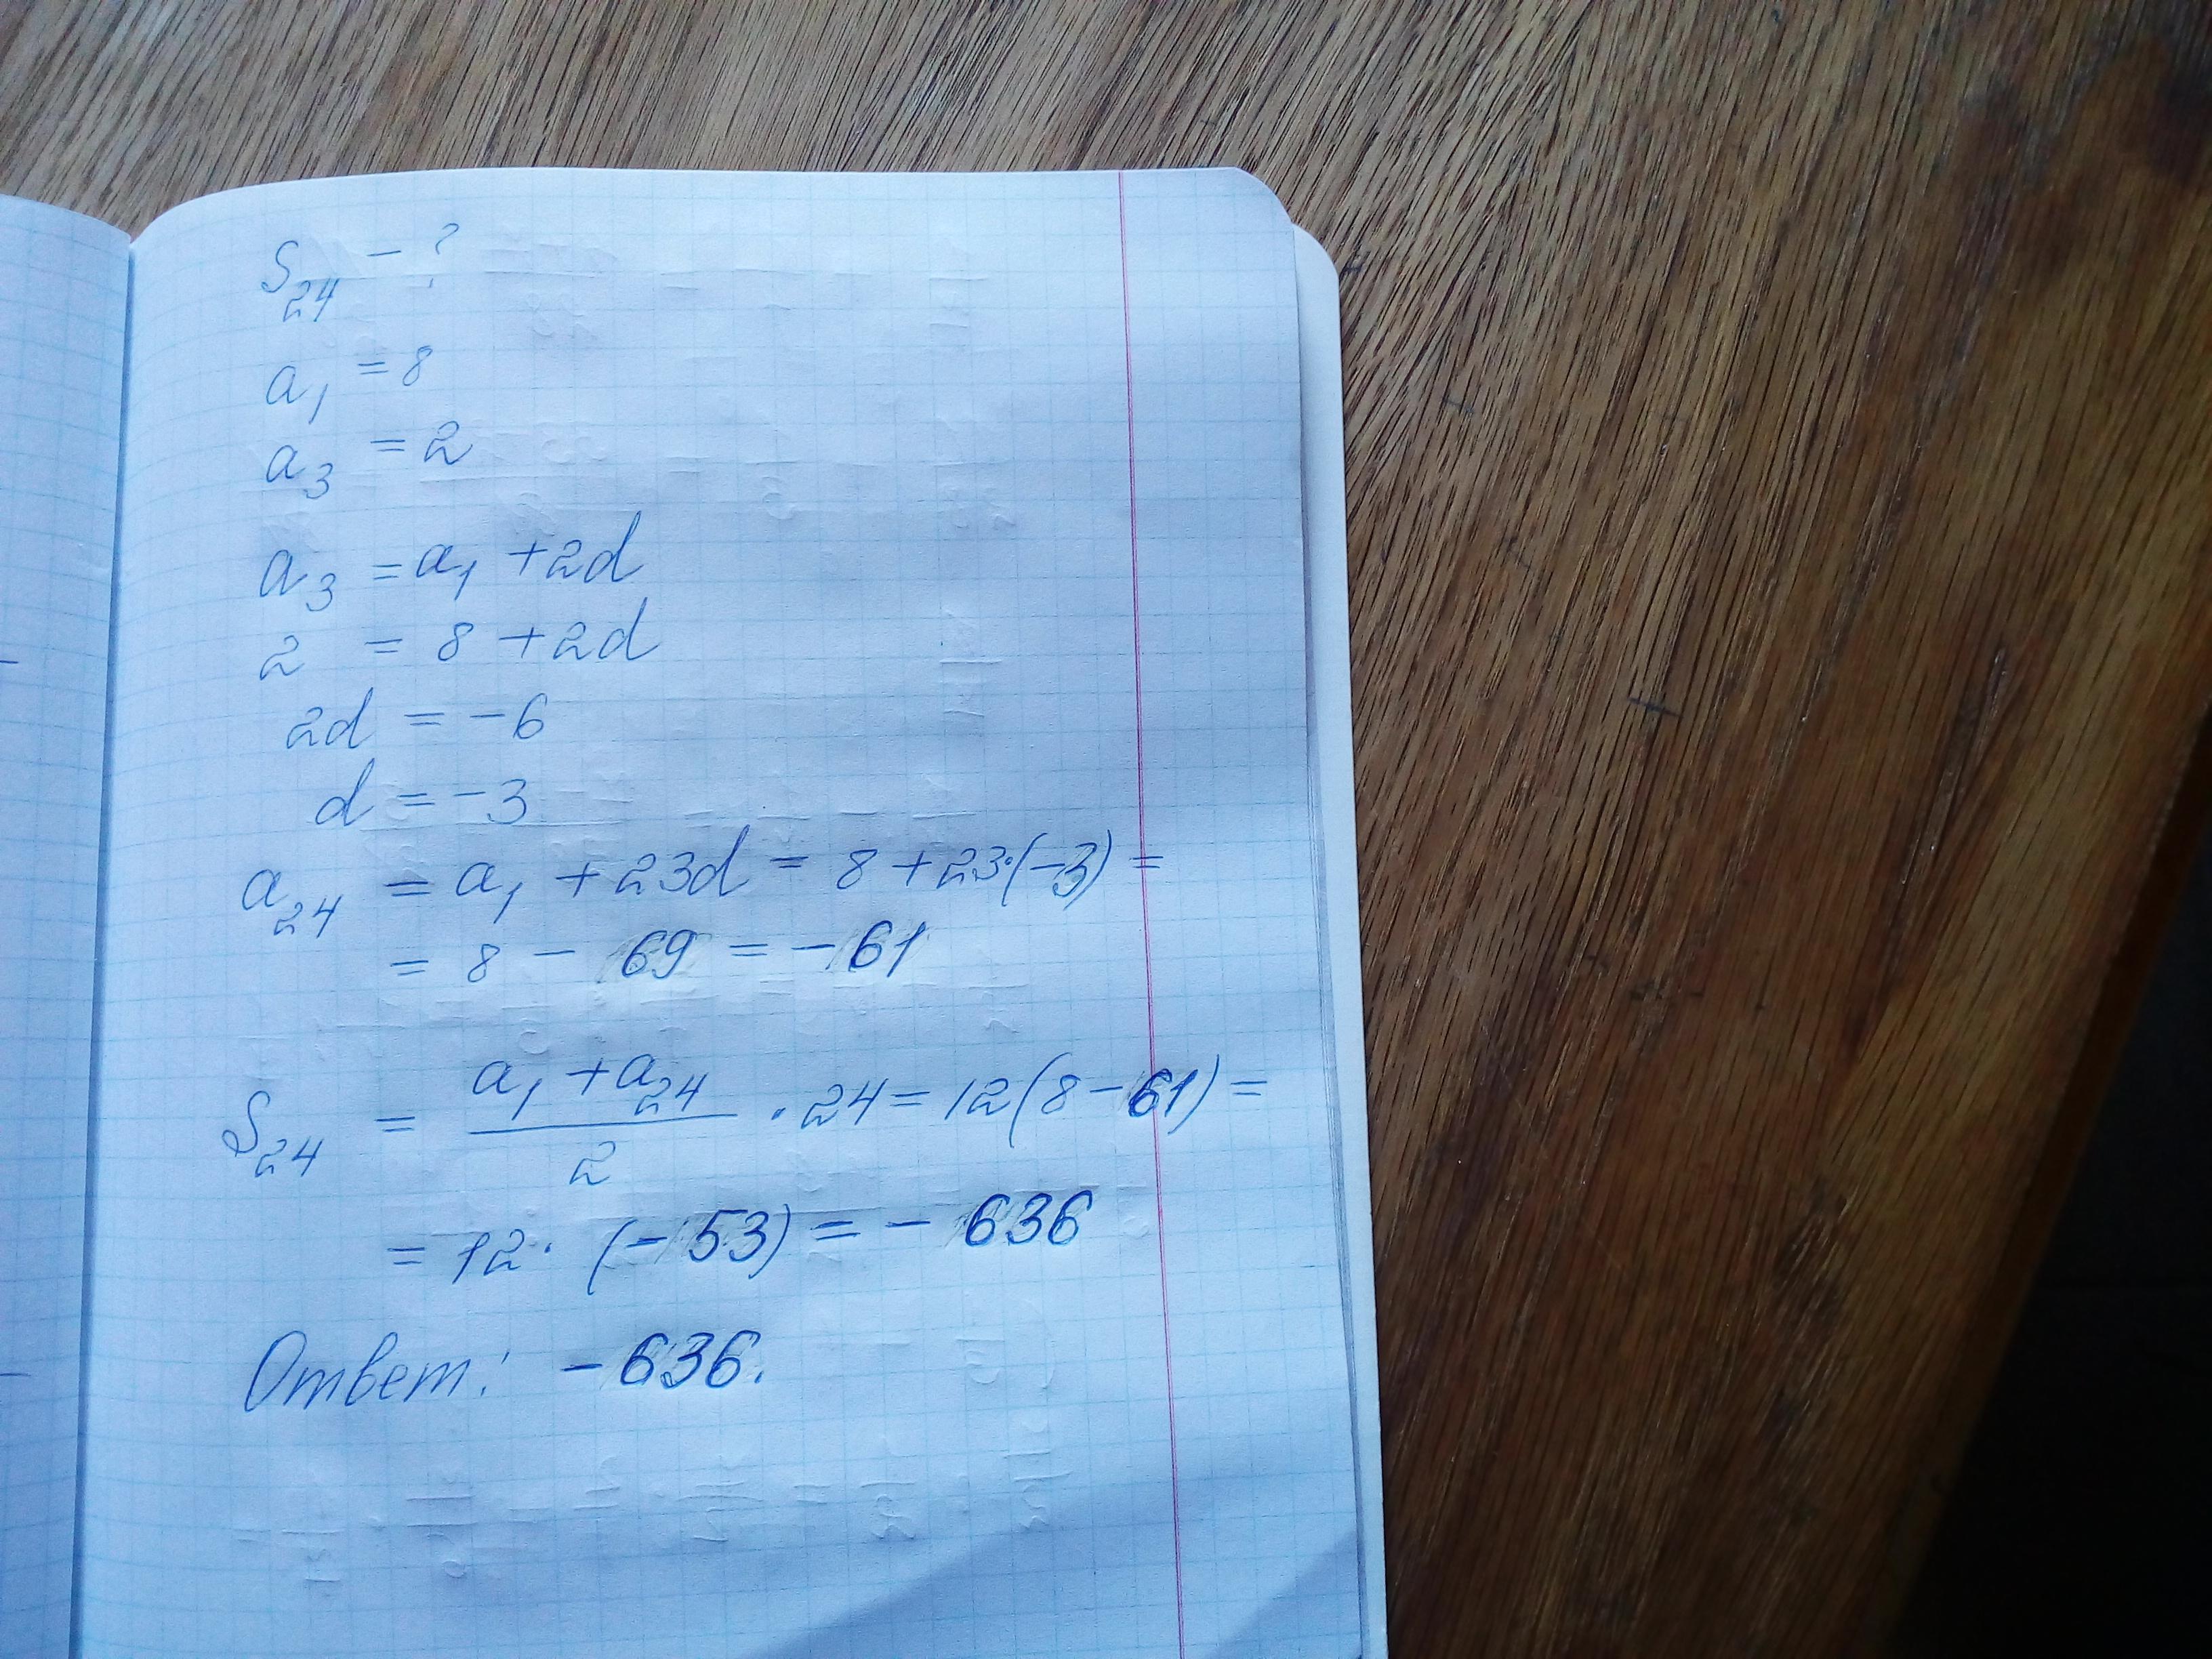 S₂₄ - ?
a₁ = 8
a₃ = 2
a₃ = a₁ + 2d
2 = 8 + 2d
2d = -6
d = -3
a₂₄ = a₁ + 23d = 8 + 23·(-3) =
= 8 - 69 = -61
S₂₄ = (a₁ + a₂₄)/2 · 24 = 12(8-61) =
= 12· (-53) = - 636
Ответ: -636.